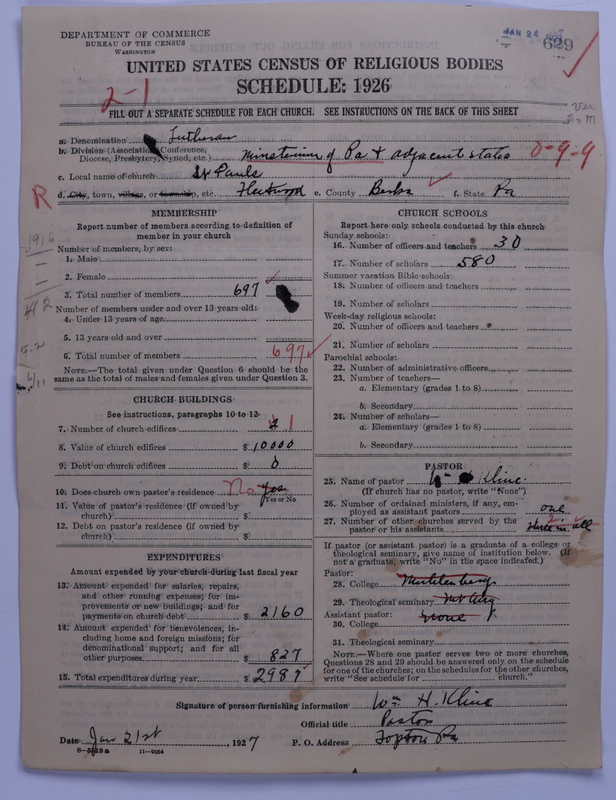 DEPARTMENT OF COMMERCE
BUREAU OF THE CENSUS
WASHINGTON
JAN 24
629
UNITED STATES CENSUS OF RELIGIOUS BODIES
SCHEDULE: 1926
2-1
FILL OUT A SEPARATE SCHEDULE FOR EACH CHURCH. SEE INSTRUCTIONS ON THE BACK OF THIS SHEET
a. Denomination Lutheran
b. Division (Association, Conference,
Diocese, Presbytery, Synod, etc.) Ministerium of Pa & adjacent states 0-9-9
c. Local name of church St Pauls
R d. City, town, village, or township, etc. Fleetwood e. County Berks f. State Pa
MEMBERSHIP
Report number of members according to definition of
member in your church
1916
Number of members, by sex:
1. Male
2. Female
3. Total number of members 697
Number of members under and over 13 years old:
4. Under 13 years of age
5. 13 years old and over
6. Total number of members 697
NOTE.—The total given under Question 6 should be
same as the total of males and females given under Question 3.
CHURCH BUILDINGS
See instructions, paragraphs 10 to 12
7. Number of church edifices 1
8. Value of church edifices $ 10000
9. Debt on church edifices $ 0
10. Does church own pastor's residence No Yes
(Yes or No)
11. Value of pastor's residence (if owned by
church) $
12. Debt on pastor's residence (if owned by
church) $
EXPENDITURES
Amount expended by your church during last fiscal year
13. Amount expended for salaries, repairs,
and other running expenses; for im-
provements or new buildings; and for
payments on church debt $ 2160
14. Amount expended for benevolences, in-
cluding home and foreign missions; for
denominational support; and for all
other purposes $ 827
15. Total expenditures during year $ 2987
CHURCH SCHOOLS
Report here only schools conducted by this church
Sunday schools:
16. Number of officers and teachers 30
17. Number of scholars 580
Summer vacation Bible schools:
18. Number of officers and teachers
19. Number of scholars
Week-day religious schools:
20. Number of officers and teachers
21. Number of scholars
Parochial schools:
22. Number of administrative officers
23. Number of teachers—
a. Elementary (grades 1 to 8)
b. Secondary
24. Number of scholars—
a. Elementary (grades 1 to 8)
b. Secondary
PASTOR
25. Name of pastor Wm H Kline
(If church has no pastor, write "None")
26. Number of ordained ministers, if any, em-
ployed as assistant pastors one
27. Number of other churches served by the
pastor or his assistants three in all
If pastor (or assistant pastor) is a graduate of a college or
theological seminary, give name of institution below. (If
not a graduate, write "No" in the space indicated.)
Pastor:
28. College Muhlenberg
29. Theological seminary Mt Airy
Assistant pastor:
30. College none
31. Theological seminary
NOTE.—Where one pastor serves two or more churches,
Questions 28 and 29 should be answered only on the schedule
for one of the churches; on the schedules for the other churches,
write "See schedule for church."
Signature of person furnishing information Wm H. Kline
Official title Pastor
Date Jan 21st, 1927 P. O. Address Topton Pa
8-5518a 11-9064